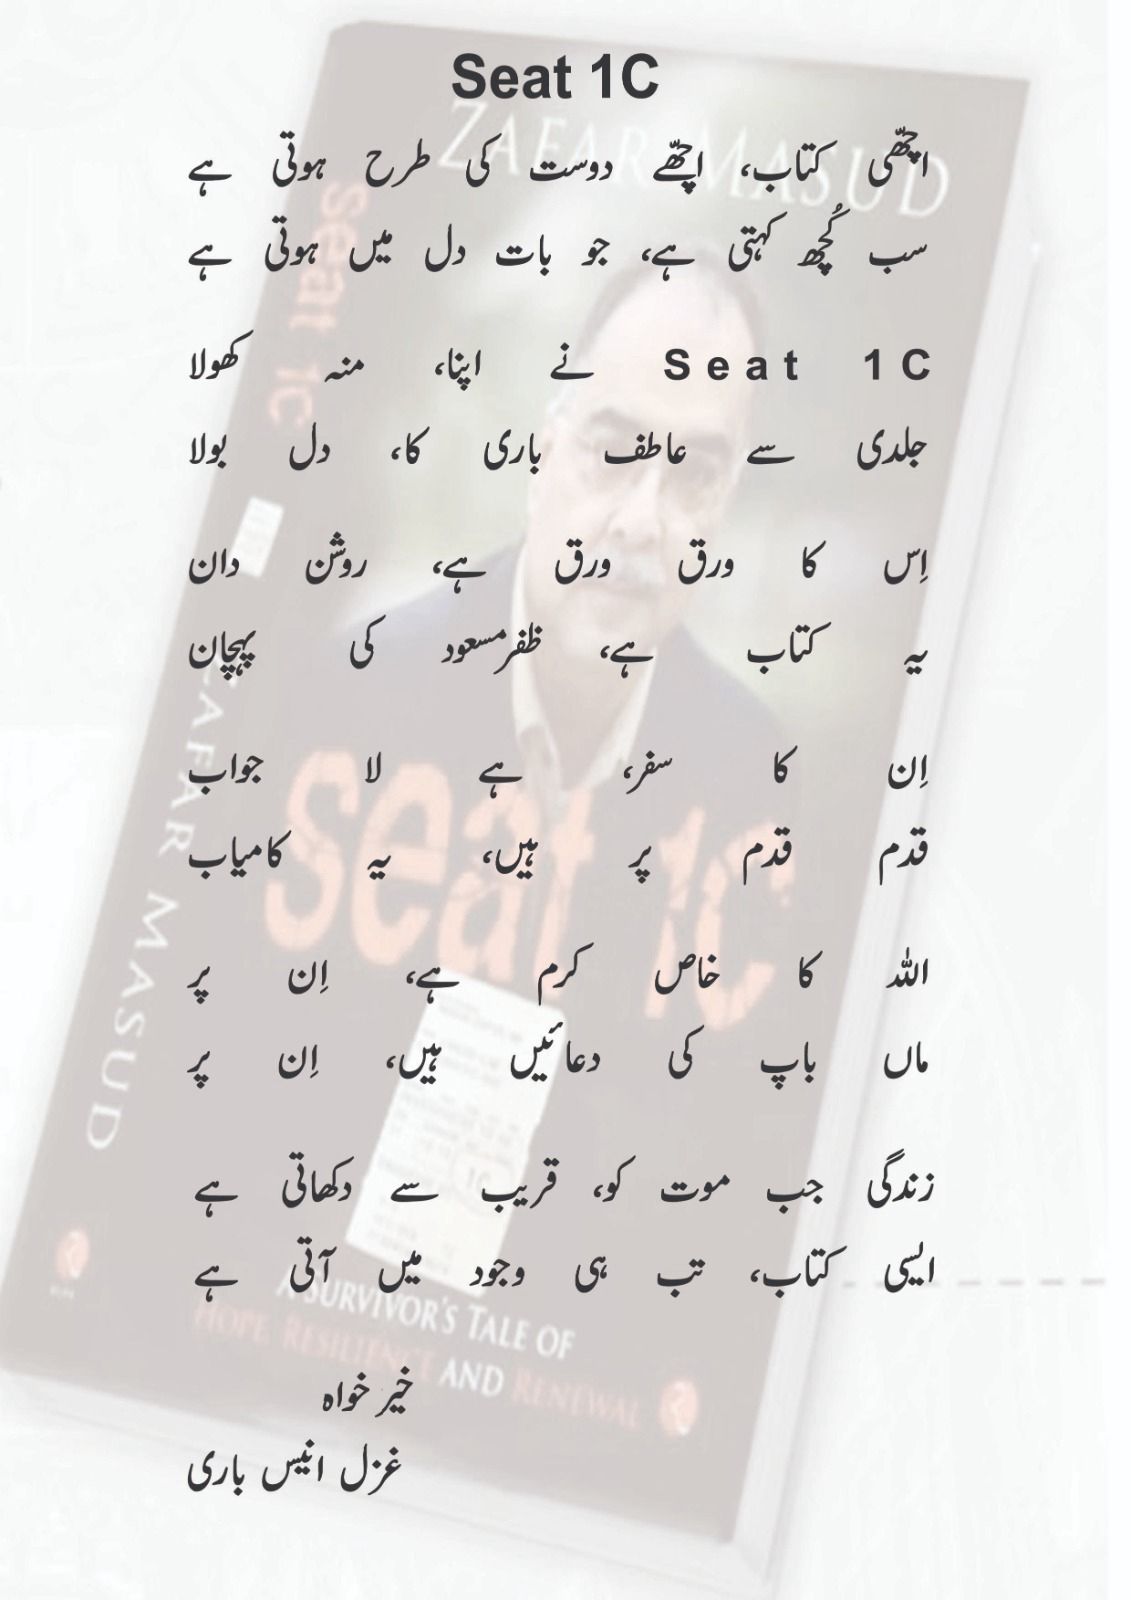 Seat 1C
اچھّی کتاب، اچھّے دوست کی طرح ہوتی ہے
سب کُچھ کہتی ہے، جو بات دل میں ہوتی ہے
Seat 1C نے اپنا، منہ کھولا
جلدی سے عاطف باری کا، دل بولا
اِس کا ورق ورق ہے، روشن دان
یہ کتاب ہے، ظفرمسعود کی پہچان
اِن کا سفر، ہے لا جواب
قدم قدم پر ہیں، یہ کامیاب
اللہ کا خاص کرم ہے، اِن پر
ماں باپ کی دعائیں ہیں، اِن پر
زندگی جب موت کو، قریب سے دکھاتی ہے
ایسی کتاب، تب ہی وجود میں آتی ہے
خیر خواہ
غزل انیس باری
ZAFAR MASUD
seat 1C
A SURVIVOR'S TALE OF
HOPE, RESILIENCE AND RENEWAL
Seat 1C
ZAFAR MASUD